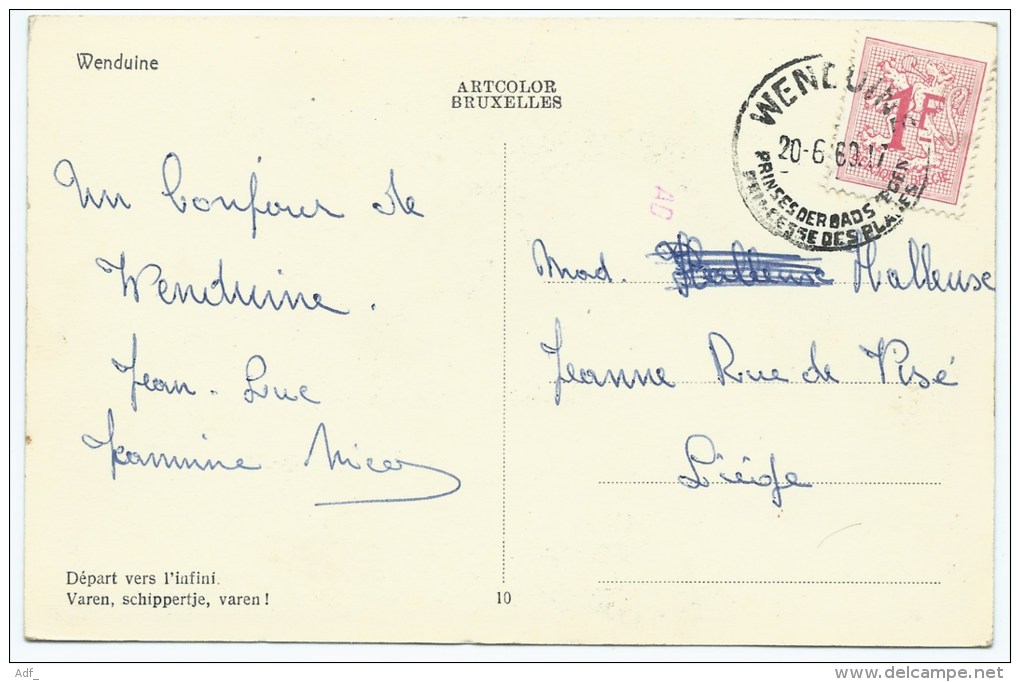 Wenduine
ARTCOLOR
BRUXELLES
WENDUINE
20-6 60.17
PRINSES DER BADSTEDEN
PRINCESSE DES PLAGES
1F
AD
Un bonjour de
Wenduine.
Jean-Luc
Jeannine Nico
Mad. Halleuse Halleuse
Jeanne Rue de Visé
Liége
Départ vers l'infini.
Varen, schippertje, varen!
10
Adf_
www.delcampe.net